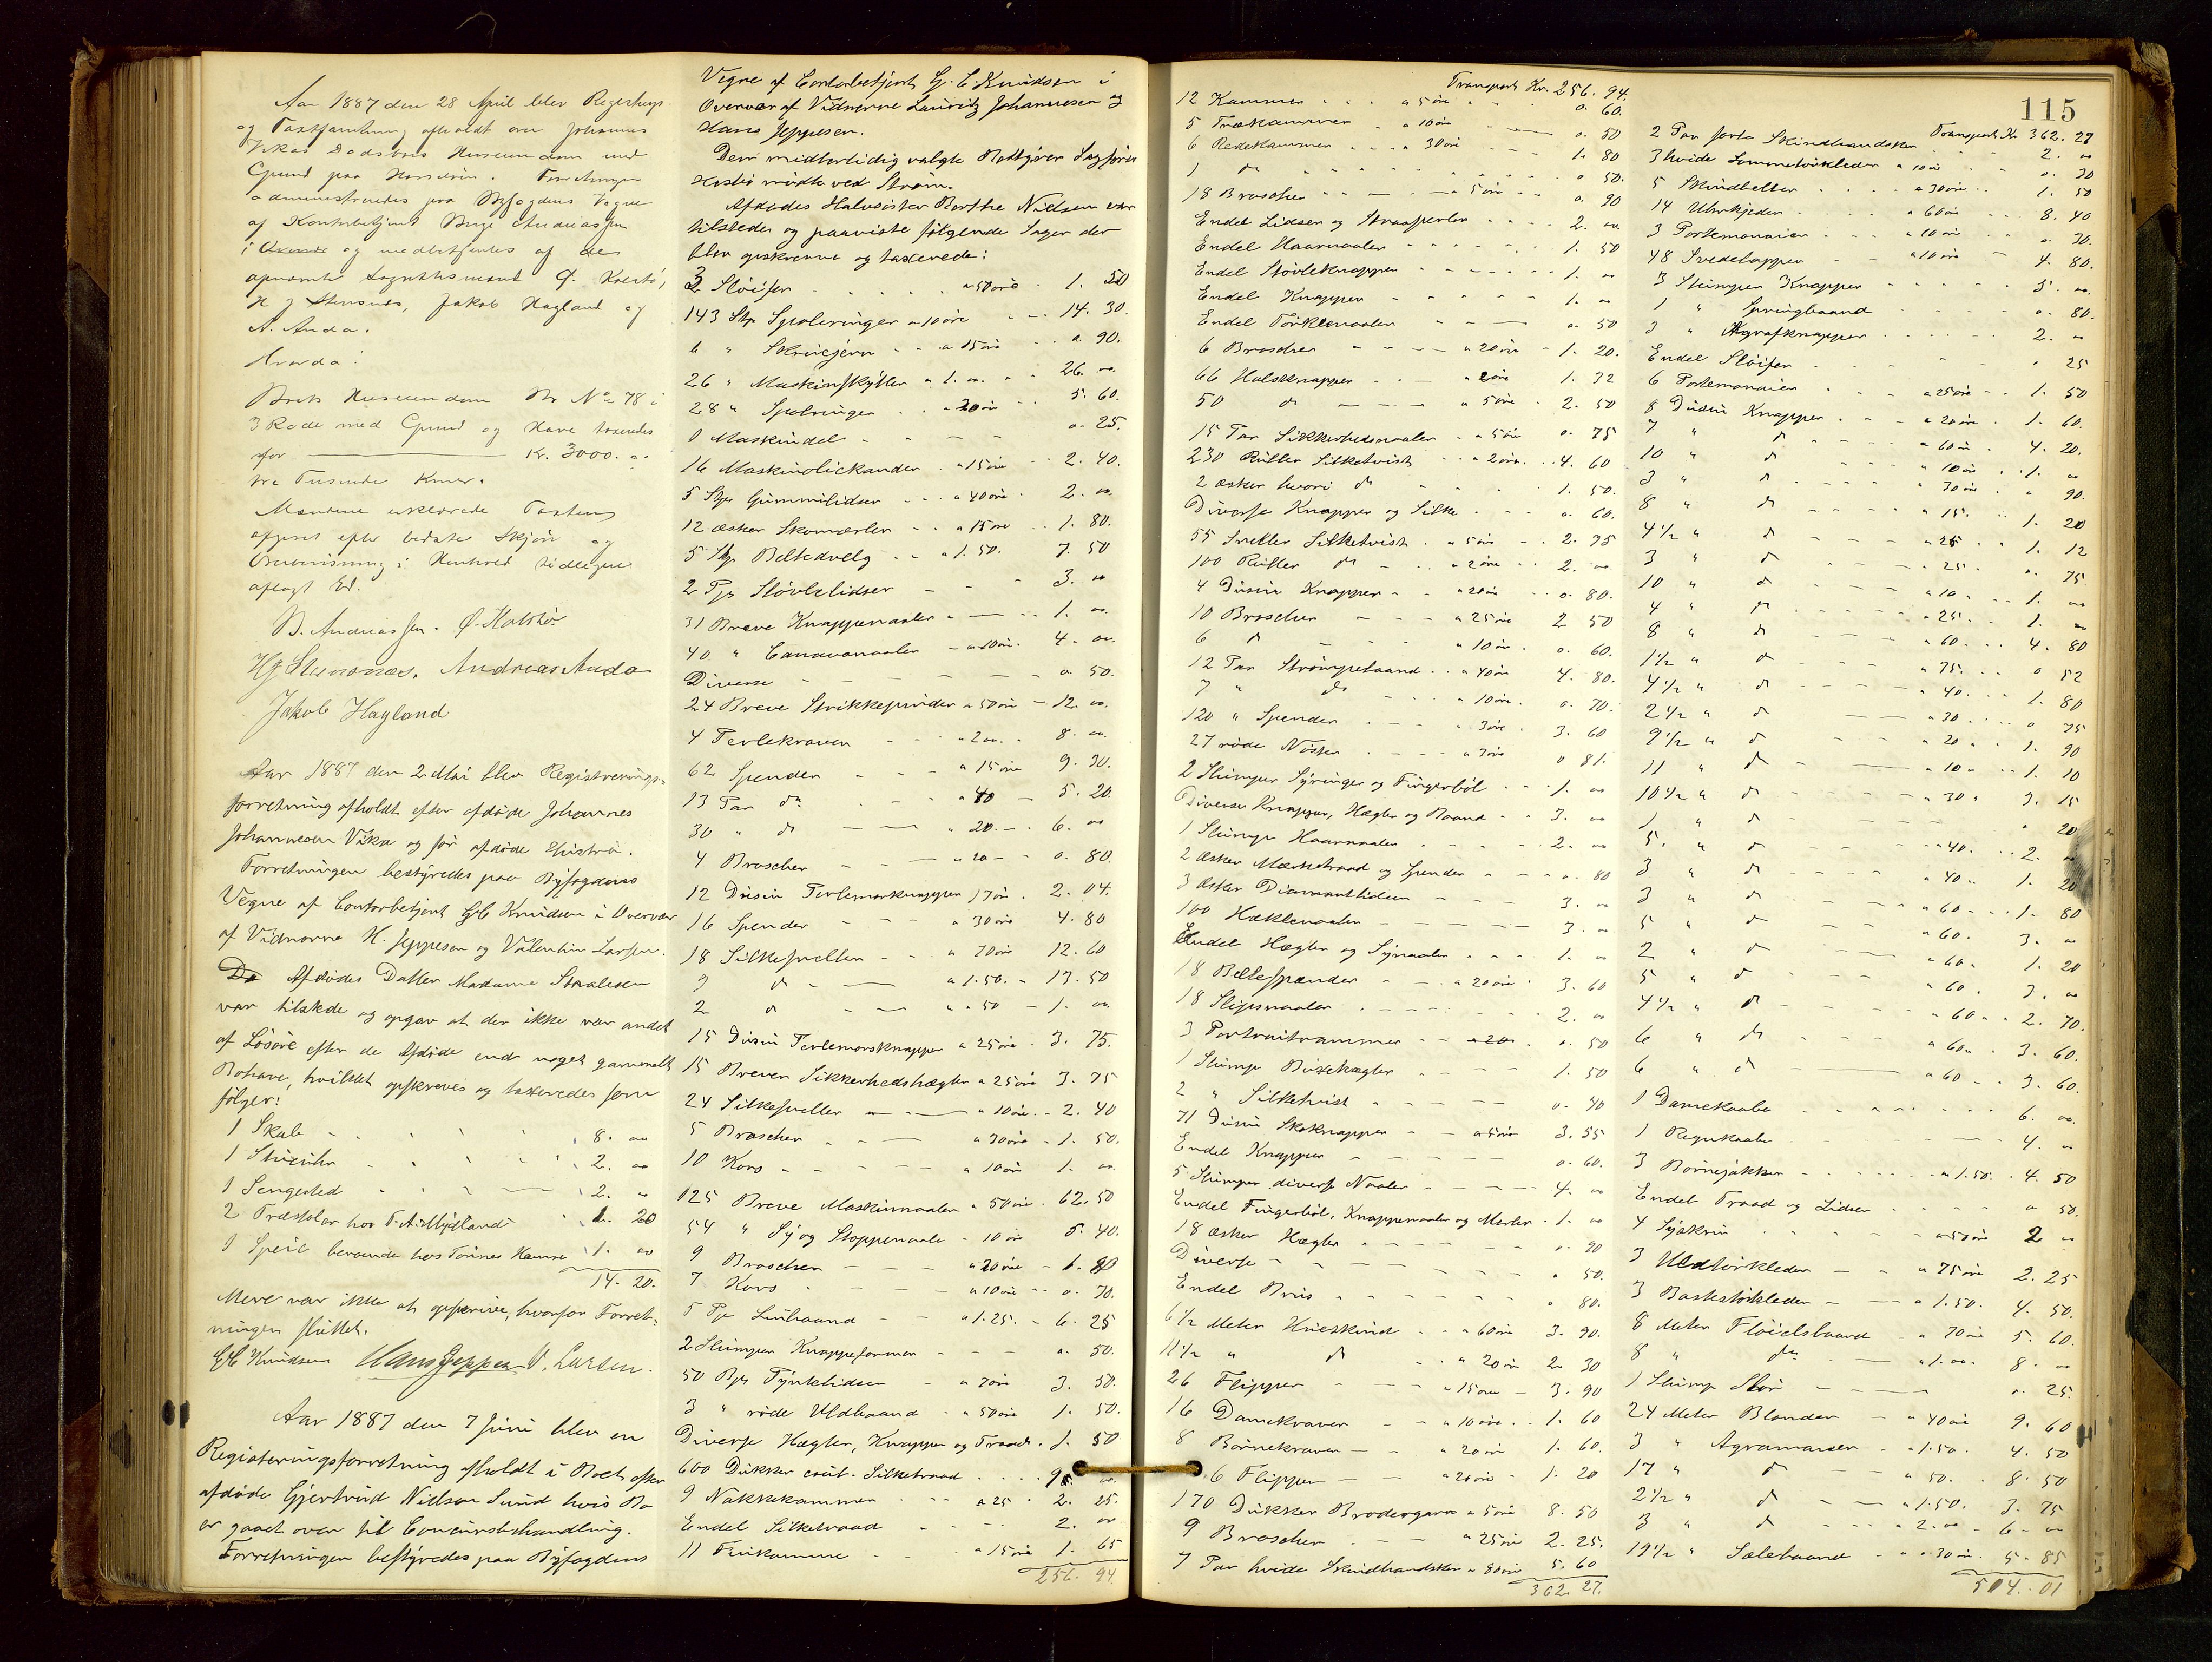 Aar 1887 den 28 April blev Registrerings-
og Taxtforretning afholdt over Johannes
Vikas Dødsbos Huseiendom med
Grund paa Hasseløen. Forretningen
administreredes paa Byfogdens Vegne
af Kontorbetjent Andreassen
i og medbetjentes af de
opnævnte Lagrettesmænd Ø. Kalstø,
H J Stensnæs, Jakob Hagland og
A. Anda.
Hvorda:
Boets Huseiendom Mr No 78 i
3 Rode med Grund og Have taxeredes
for Kr. 3000. "
tre Tusinde Kroner.
Mændene erklærede Taxten
afgivet efter bedste Skjøn og
Overbevisning i Henhold tidligere
aflagt Ed.
B. Andreassen. Ø. Kalstø
HJ Stensnæs. Andreas Anda
Jakob Hagland
Aar 1887 den 2 Mai blev Registrerings-
forretning afholdt efter afdøde Johannes
Johannesen Vika og før afdøde Hustru.
Forretningen bestyredes paa Byfogdens
Vegne af Contorbetjent G.C Knudsen i Overvær
af Vidnerne H. Jeppesen og Valentin Larsen.
Da Afdødes Datter Madame Staalesen
var tilstede og opgav at der ikke var andet
af Løsøre efter de Afdøde end noget gammelt
Bohave, hvilket opskreves og taxeredes som
følger:
1 Skab 8. "
1 Stueuhr 2. "
1 Sengested 2. "
2 Træstoler hos T. A. Mydland 1. 20
1 Speil beroende hos Tønnes 1. "
14. 20.
Mere var ikke at opskrive, hvorfor Forret-
ningen sluttet.
G.C Knudsen Hans Jeppesen V. Larsen.
Aar 1887 den 7 Juni blev en
Registreringsforretning afholdt i Boet efter
afdøde Gjertrud Nielsen Sund hvis Bo
er gaaet over til Concursbehandling.
Forretningen bestyredes paa Byfogdens
Vegne af Contorbetjent G. C. Knudsen i
Overvær af Vidnerne Lauritz Johannesen og
Hans Jeppesen.
Den midlertidig valgte Bestyrer Sagfører
mødte ved Strøm.
Afdødes Halvsøster Berthe Nielsen var
tilstede og paaviste følgende Sager der
blev opskrevne og taxerede:
3 Sløifer a 50 øre 1. 50
143 Stk Spoleringer a 10 øre 14. 30.
6 " Skruejern a 15 øre " 90.
26 " Maskinskytter a 1. " 26. "
28 " Spolringer a 20 øre 5. 60.
1 Maskindel " 25.
16 Maskinoliekander a 15 øre 2. 40.
5 Stk Gummilidser a 40 øre 2. "
12 æsker a 15 øre 1. 80.
5 Stk Beltedvelg a 1. 50. 7. 50
2 Pk Støvlelidser 3. "
31 Breve Knappenaaler 1. "
40 " Canavanaaler a 10 øre 4. "
Diverse " 50.
24 Breve Strikkepinder a 50 øre 12. "
4 Perlekraver a 2 " 8. "
62 Spender a 15 øre 9. 30.
13 Par do a 40 5. 20.
30 " do a 20 6. "
4 Broscher a 20 0. 80.
12 Dusin Perlemorknapper 17 øre 2. 04.
16 Spender a 30 øre 4. 80
18 Silkesneller a 70 øre 12. 60
9 do a 1. 50. 13. 50
2 do a 50 1. "
15 Dusin Perlemorsknapper a 25 øre 3. 75.
15 Breve Sikkerhedshægter a 25 øre 3. 75
24 Silkesneller a 10 øre 2. 40
5 Broscher a 30 øre 1. 50.
10 Kors a 10 øre 1. "
125 Breve Maskinnaaler a 50 øre 62. 50
54 " Sy og Stoppenaale 10 øre 5. 40.
9 Broscher a 20 øre 1. 80
7 Kors a 10 øre 0. 70.
5 Pk Linbaand a 1. 25. 6. 25
2 Slumper Knappeformer " 50.
50 Bjk Tynklidser a 7 øre 3. 50.
3 " røde Uldbaand a 50 øre 1. 50.
Diverse Hægter, Knapper og Traad 1. 50
600 Dukker coul. Silketraad 9. "
9 Nakkekammer a 25 2. 25.
Endel Silketraad 2. "
11 Finkamme a 15 øre 1. 65
256. 94
115
Transport Kr. 256. 94.
12 Kammer a 5 øre 0. 60.
5 Trækammer a 10 øre 0. 50
6 Redekammer a 30 øre 1. 80
1 do 0 50.
18 Broscher a 5 øre 0. 90
Endel Lidser og Straaperler 2. "
Endel Haarnaaler 1. 50
Endel Støvleknapper 1. "
Endel Knapper 1. "
Endel Tørklenaaler 0. 50
6 Broscher a 20 øre 1. 20.
66 Halsknapper a 2 øre 1. 32
50 do a 5 øre 2. 50
15 Par Sikkerhedsnaaler a 5 øre 0. 75
230 Ruller Silketvist a 2 øre 4. 60
2 æsker hvori do 1. 50.
Diverse Knapper og Silke 0. 60.
55 Sneller Silketvist a 5 øre 2. 75
100 Ruller do a 2 øre 2. "
4 Dusin Knapper a 20 øre 0. 80.
10 Broscher a 25 øre 2 50
6 do a 10 øre 0. 60.
12 Par Strømpebaand a 40 øre 4. 80.
7 " do a 10 øre 0. 70.
120 " Spender a 3 øre 3. 60
27 røde Nøster a 3 øre 0 81.
2 Slumper Syringer og Fingerbøl 1. "
Diverse Knapper, Hægter og Baand 3. "
1 Slump Haarnaaler 2. "
2 æsker Mærketraad og Spender 0. 80
3 æsker Diamantlidser 3. "
100 Hæklenaaler 3. "
Endel Hægter og Synaaler 1. "
18 Beltespænder a 20 øre 3. 60
18 Slipsnaaler 2. "
3 Portraitrammer a 20 0. 50
1 Slump Buxehægter 1. 50
2 " Silketvist 0. 40
71 Dusin Skoknapper a 5 øre 3. 55
Endel Knapper 0. 60.
5 Slumper diverse Naaler 4. "
Endel Fingerbøl, Knappenaaler og Merler 1. "
18 æsker Hægter 0. 90
Diverse " 50.
Endel Bris " 80.
6 1/2 Meter Hueskind a 60 øre 3. 90.
11 1/2 " do a 20 øre 2 30
26 Flipper a 15 øre 3. 90
16 Damekraver a 10 øre 1. 60
8 Børnekraver a 20 øre 1. 60.
6 Flipper a 20 øre 1. 20
170 Dukker Brodergarn a 5 øre 8. 50
9 Broscher a 25 øre 2. 25.
7 Par hvide Skindhandsker a 80 øre 5. 60
362. 27.
Transport Kr 362. 27
2 Par sorte Skindhandsker 2. "
3 hvide Lommetørklæder a 10 øre 0. 30
5 Skindbelter a 30 øre 1. 50
14 Uhrkjeder a 60 øre 8. 40
3 Portemonaier a 10 øre 0. 30.
48 Svedelapper a 10 øre 4. 80.
3 Slumper Knapper 5. "
1 " Springbaand 0. 80.
3 " Agrafknapper 2. "
Endel Sløifer " 25
6 Portemonaier a 25 øre 1. 50
8 Dusin Knapper a 20 øre 1. 60.
7 " do a 60 øre 4. 20.
10 " do a 10 øre 1. "
3 " do a 30 øre " 90.
8 " do a 15. 1. 20
4 1/2 " do a 25 1. 12
3 " do a 25. 0. 75
10 " do a 10 1. "
4 " do a 25. 1. "
8 " do a 60 4. 80
1 1/2 " do a 75. 0 52
4 1/2 " do a 40. 1. 80
2 1/2 " do a 30 0 75
9 1/2 " do a 20 1. 90
11 " do a 10 1. 10
10 1/2 " do a 30 3. 15
1 " do " 20
5. " do a 40. 2. "
3 " do a 40 1. 20
3 " do a 60 1. 80
5 " do a 60. 3. "
2 " do a 60 1. 20
5 " do a 60. 3. "
4 1/2 " do a 60 2. 70.
6 " do a 60 3. 60.
6 " do a 60 3. 60.
1 Damekaabe 6. "
1 Regnkaabe 4. "
3 Børnejakker a 1. 50. 4. 50
Endel Traad og Lidser 0 50.
4 Syskrin a 50 øre 2 "
3 Uldtørkleder a 75 øre 2. 25
3 Bastetørkleder a 1. 50. 4. 50.
8 Meter Fløielsbaand a 70 øre 5. 60.
8 " do a 1. " 8. "
1 Slump Slør 0. 25.
24 Meter Blonder a 40 øre 9. 60
3 " Agramaner a 1. 50. 4. 50
17 " do a 50. 8. 50
2 1/2 " do a 1. 50. 3. 75
3 " do a 2. " 6. "
19 1/2 " Salebaand a 30 øre 5. 85
504. 01